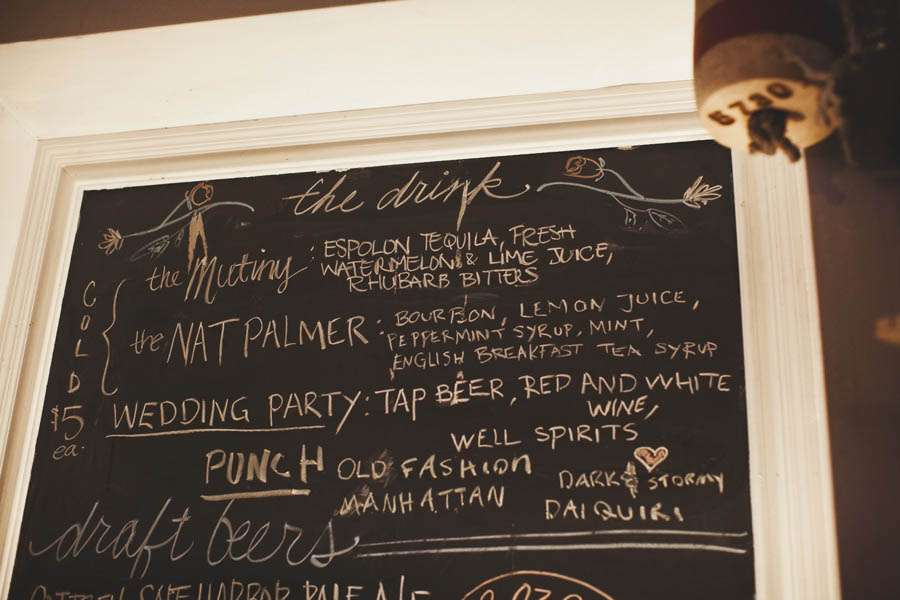 5730
the drink
the Mutiny : ESPOLON TEQUILA, FRESH
WATERMELON & LIME JUICE,
RHUBARB BITTERS
COLD
the NAT PALMER : BOURBON, LEMON JUICE,
PEPPERMINT SYRUP, MINT,
ENGLISH BREAKFAST TEA SYRUP
$5
ea.
WEDDING PARTY: TAP BEER, RED AND WHITE
WINE,
WELL SPIRITS
PUNCH OLD FASHION
MANHATTAN
DARK & STORMY
DAIQUIRI
draft beers
SAFE HARBOR PALE ALE